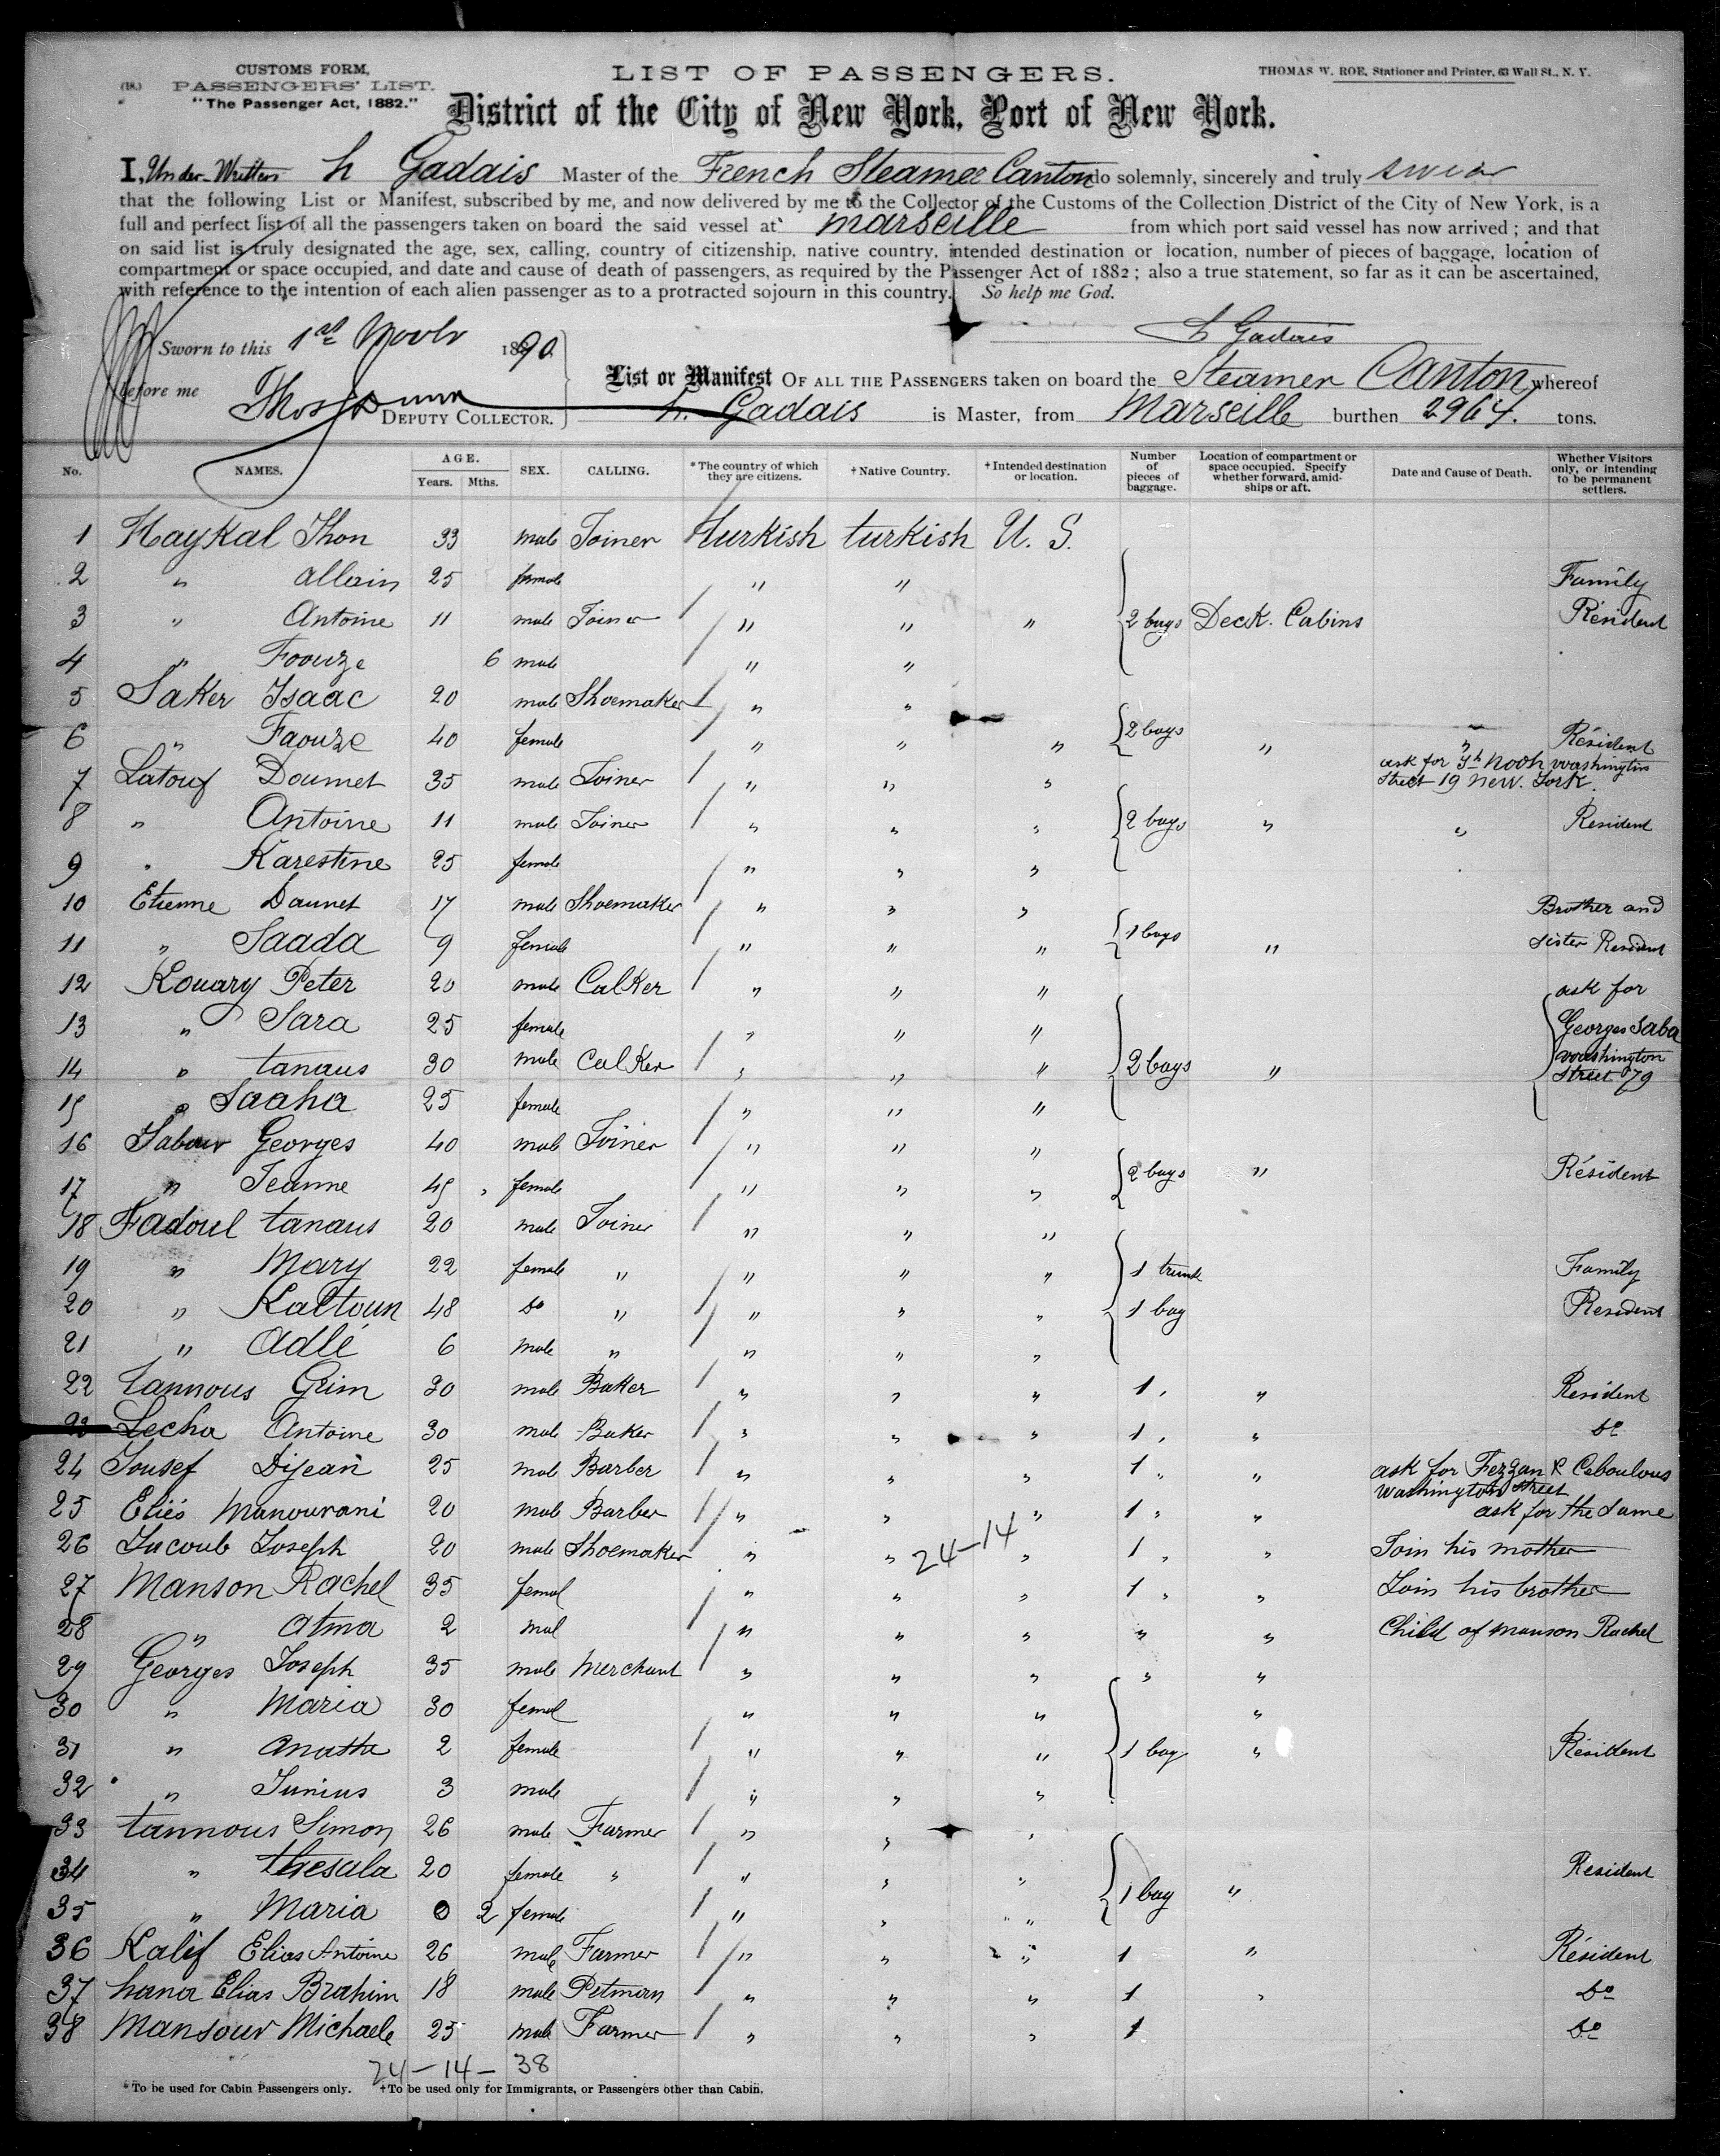 CUSTOMS FORM,
(18.) PASSENGERS' LIST.
"The Passenger Act, 1882."
LIST OF PASSENGERS.
THOMAS W. ROE, Stationer and Printer, 63 Wall St., N. Y.
District of the City of New York, Port of New York.
I, Under-Written h Gadais Master of the French Steamer Canton do solemnly, sincerely and truly swear
that the following List or Manifest, subscribed by me, and now delivered by me to the Collector of the Customs of the Collection District of the City of New York, is a
full and perfect list of all the passengers taken on board the said vessel at Marseille from which port said vessel has now arrived ; and that
on said list is truly designated the age, sex, calling, country of citizenship, native country, intended destination or location, number of pieces of baggage, location of
compartment or space occupied, and date and cause of death of passengers, as required by the Passenger Act of 1882 ; also a true statement, so far as it can be ascertained,
with reference to the intention of each alien passenger as to a protracted sojourn in this country. So help me God.
h Gadais
Sworn to this 1st Novbr 1890
before me Thos Dunn DEPUTY COLLECTOR.
List or Manifest OF ALL THE PASSENGERS taken on board the Steamer Canton whereof
h. Gadais is Master, from Marseille burthen 2964. tons.
No. NAMES. AGE. Years. Mths. SEX. CALLING. *The country of which they are citizens. †Native Country. †Intended destination or location. Number of pieces of baggage. Location of compartment or space occupied. Specify whether forward, amidships or aft. Date and Cause of Death. Whether Visitors only, or intending to be permanent settlers.
1 Haykal Jhon 33 male Joiner turkish turkish U. S.
2 " allain 25 female " " Family
3 " Antoine 11 male Joiner " " " 2 bags Deck. Cabins Résident
4 " Foouze 6 male " "
5 Saker Isaac 20 male Shoemaker " "
6 " Faouze 40 female " " " 2 bags " " Résident
7 Latouf Doumet 35 male Joiner " " " ask for Jh Nooh Washington
Street 19 New. York.
8 " Antoine 11 male Joiner " " " 2 bags " " Resident
9 " Karestine 25 female " " "
10 Etienne Daunet 17 male Shoemaker " " " Brother and
11 " Saada 9 female " " " 1 bags " sister Resident
12 Kouary Peter 20 male Calker " " " ask for
13 " Sara 25 female " " " Georges Saba
14 " tanaus 30 male Calker " " " 2 bags " Washington
Street 79
15 " Saaha 25 female " " "
16 Sabour Georges 40 male Joiner " " "
17 " Jeanne 45 female " " " 2 bags " Résident
18 Fadoul tanaus 20 male Joiner " " "
19 " Mary 22 female " " " " 1 trunk Family
20 " Kaltoun 48 do " " " " 1 bag Resident
21 " Adlé 6 male " " " "
22 tannous Grim 30 male Baker " " " 1 " " Resident
23 Lecha Antoine 30 male Baker " " " 1 " " do
24 Jousef Dijean 25 male Barber " " " 1 " " ask for Fezzan & Caboulous
Washington Street
25 Eliés Manourani 20 male Barber " " " 1 " " ask for the same
24-14
26 Jacoub Joseph 20 male Shoemaker " " " 1 " " Join his mother
27 Manson Rachel 35 femal " " " 1 " " Join his brother
28 " atma 2 mal " " " " " Child of Manson Rachel
29 Georges Joseph 35 male Merchant " " " " "
30 " Maria 30 femal " " " "
31 " Anatha 2 female " " " 1 bag " Résident
32 " Junius 3 male " " "
33 tannous Simon 26 male Farmer " " "
34 " thesala 20 female " " " " Resident
35 " Maria 0 2 female " " " 1 bag "
36 Kalif Elias Antoine 26 male Farmer " " " 1 " Résident
37 hana Elias Brahim 18 male Petman " " " 1 " do
38 Mansour Michaele 25 male Farmer " " " 1 do
24-14- 38
*To be used for Cabin Passengers only. †To be used only for Immigrants, or Passengers other than Cabin.